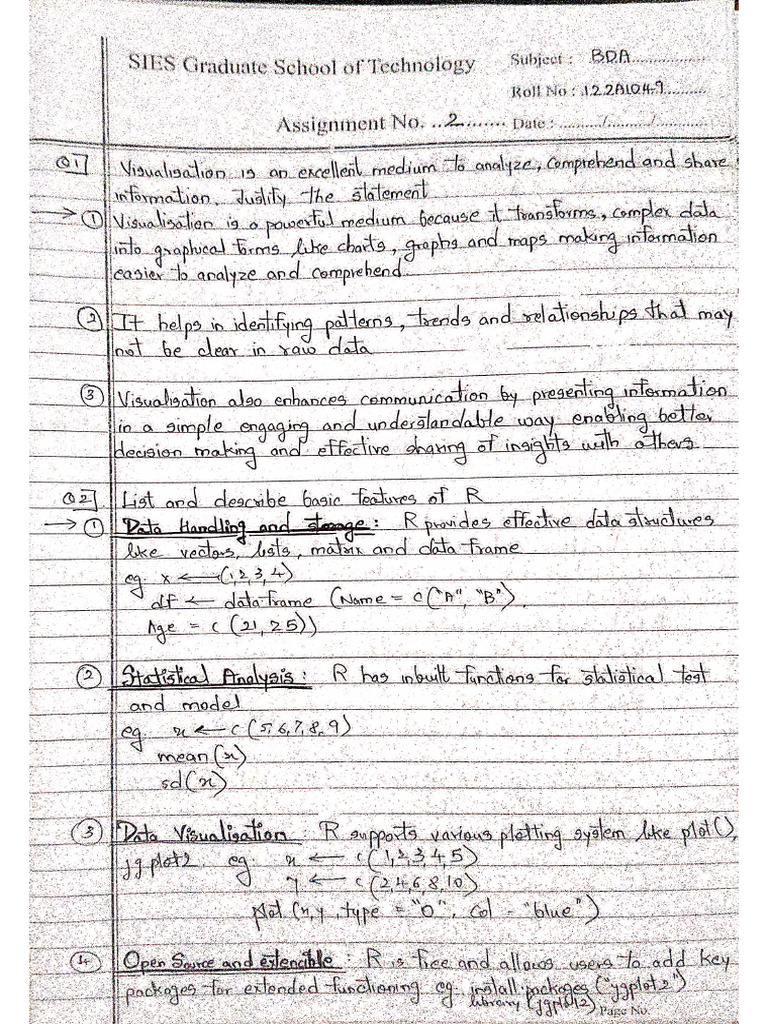 SIES Graduate School of Technology
Subject : BDA
Roll No : 122A1049
Assignment No. 2
Date : ......../......../........
Q1 Visualisation is an excellent medium to analyze, comprehend and share
information. Justify the statement
→ ① Visualisation is a powerful medium because it transforms, complex data
into graphical forms like charts, graphs and maps making information
easier to analyze and comprehend
② It helps in identifying patterns, trends and relationships that may
not be clear in raw data
③ Visualisation also enhances communication by presenting information
in a simple engaging and understandable way enabling better
decision making and effective sharing of insights with others
Q2 List and describe basic features of R
→ ① Data Handling and storage : R provides effective data structures
like vectors, lists, matrix and data frame
eg x ← (1,2,3,4)
df ← data.frame (Name = c("A", "B"),
Age = c (21, 25))
② Statistical Analysis : R has inbuilt functions for statistical test
and model
eg. x ← c(5,6,7,8,9)
mean(x)
sd(x)
③ Data Visualisation : R supports various plotting system like plot(),
ggplot2. eg. x ← c(1,2,3,4,5)
y ← c(2,4,6,8,10)
plot (x,y, type = "o", col = "blue")
④ Open Source and extencible : R is free and allows users to add key
packages for extended functioning eg. install.packages ("ggplot2")
library (ggplot2)
Page No.